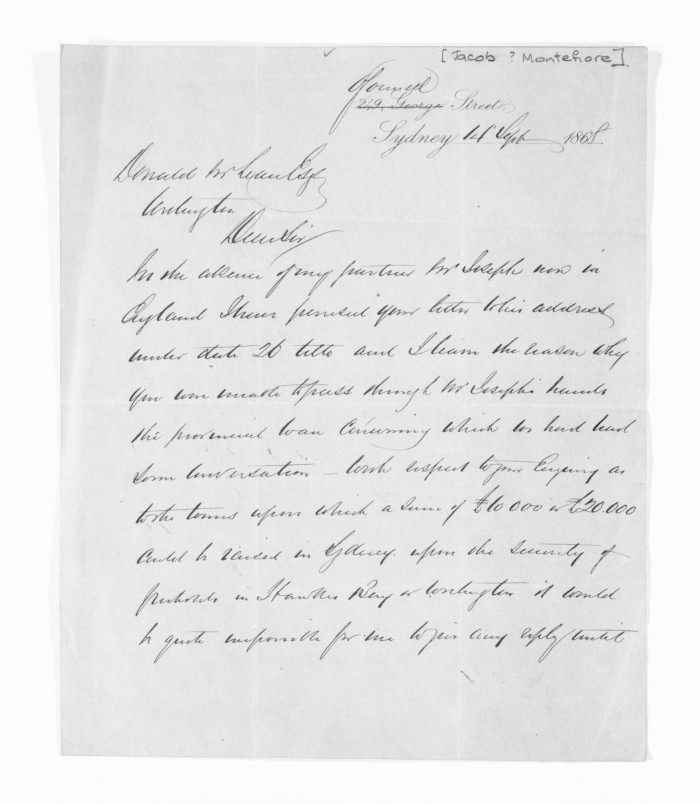 [Jacob ? Montefiore]
O'Connell
249, George Street
Sydney 14 Sept 1868.
Donald McLean Esq
Wellington
Dear Sir
In the absence of my partner Mr Joseph now in
England I have perused your letter to his address
under date 26 Ulto and I learn the reason why
you were unable to pass through Mr Joseph's hands
the provincial loan concerning which we had had
some conversation – With respect to your Enquiry as
to the terms upon which a sum of £10.000 or £20.000
could be raised in Sydney upon the security of
freeholds in Hawkes Bay or Wellington it would
be quite impossible for me to give any reply until